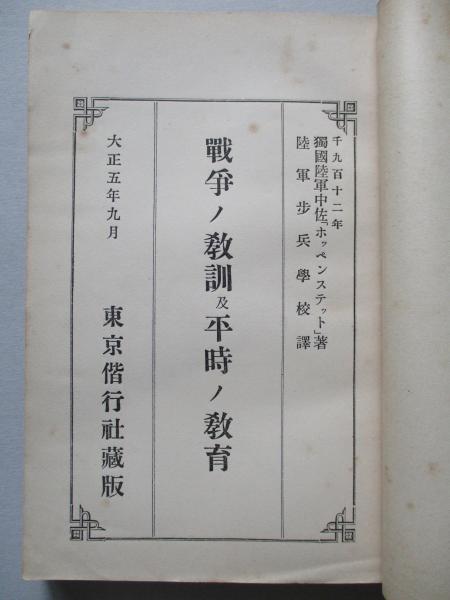 千九百十二年
獨國陸軍中佐「ホッペンステット」著
陸軍步兵學校譯
戰爭ノ敎訓及平時ノ敎育
大正五年九月
東京偕行社藏版